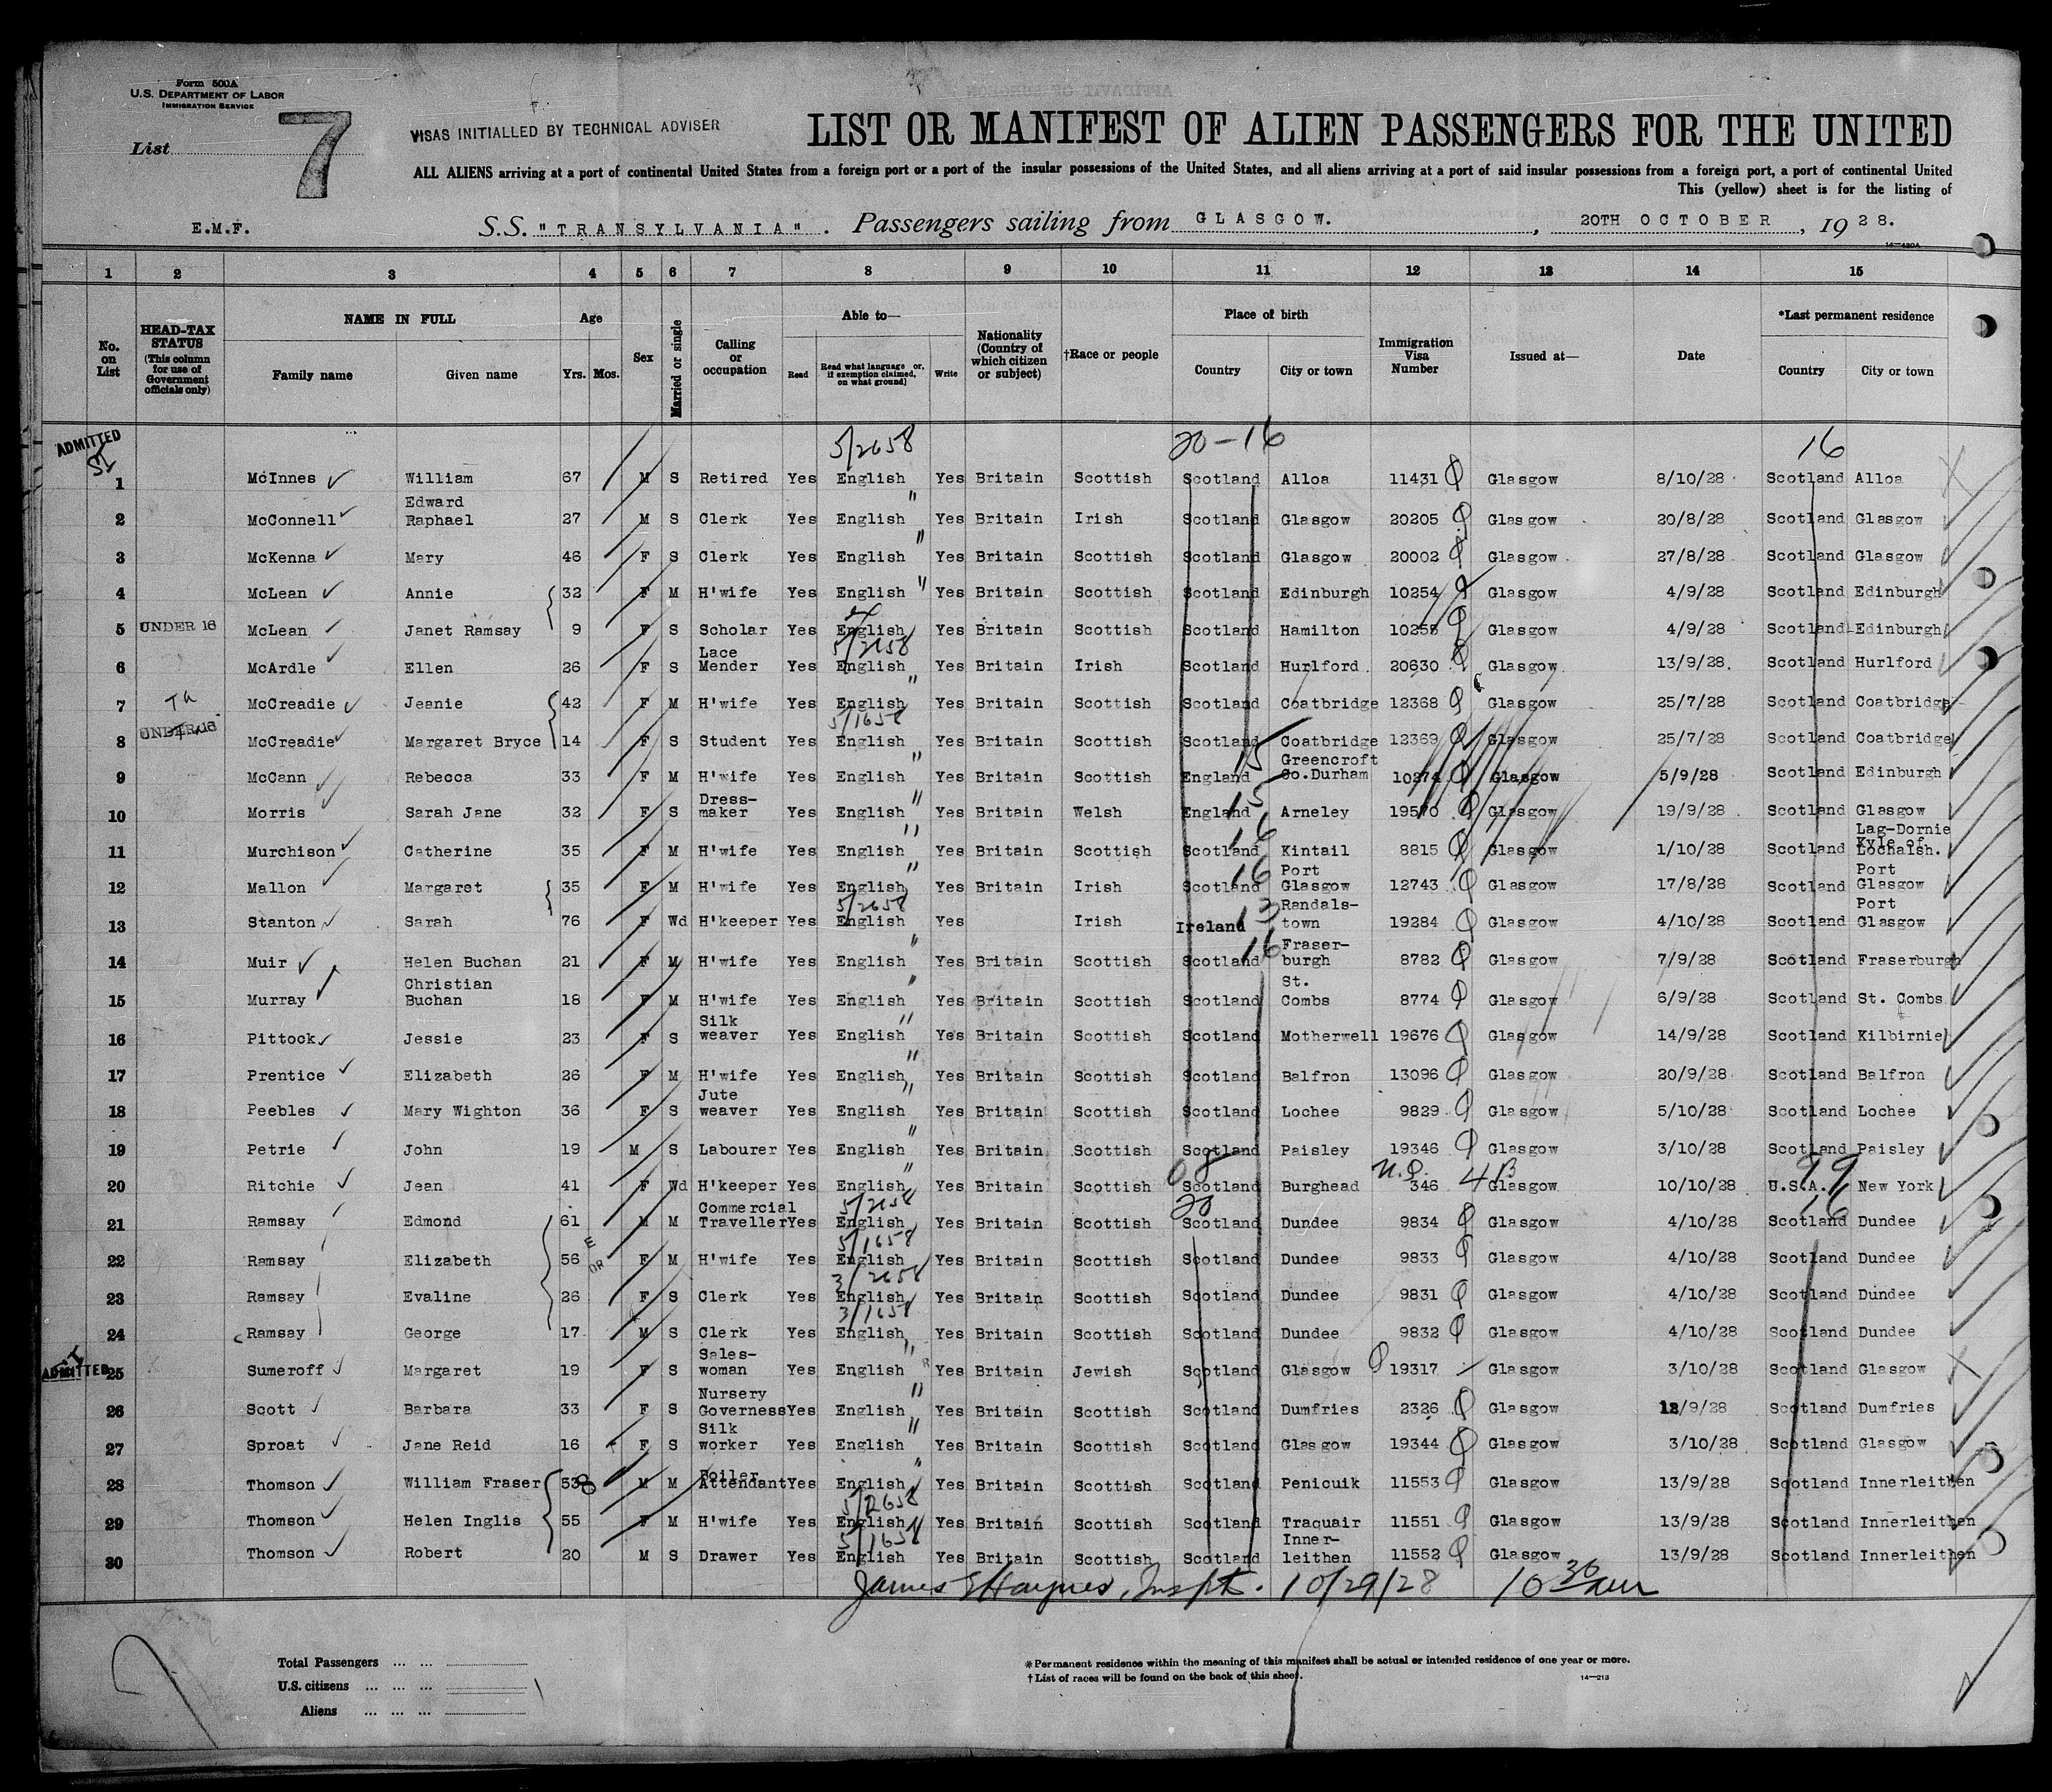 Form 500A
U.S. DEPARTMENT OF LABOR
IMMIGRATION SERVICE
List 7
VISAS INITIALLED BY TECHNICAL ADVISER
LIST OR MANIFEST OF ALIEN PASSENGERS FOR THE UNITED
ALL ALIENS arriving at a port of continental United States from a foreign port or a port of the insular possessions of the United States, and all aliens arriving at a port of said insular possessions from a foreign port, a port of continental United
This (yellow) sheet is for the listing of
E.M.F. S.S. "TRANSYLVANIA". Passengers sailing from GLASGOW. , 20TH OCTOBER , 19 28.
14—430A
1 2 3 4 5 6 7 8 9 10 11 12 13 14 15
No. on List
HEAD-TAX STATUS (This column for use of Government officials only)
NAME IN FULL
Family name Given name
Age
Yrs. Mos.
Sex
Married or single
Calling or occupation
Able to—
Read Read what language or, if exemption claimed, on what ground] Write
Nationality (Country of which citizen or subject)
†Race or people
Place of birth
Country City or town
Immigration Visa Number
Issued at—
Date
*Last permanent residence
Country City or town
ADMITTED 5/2658 20-16 16
1 McInnes William 67 M S Retired Yes English Yes Britain Scottish Scotland Alloa 11431 Glasgow 8/10/28 Scotland Alloa
2 McConnell Edward Raphael 27 M S Clerk Yes English " Yes Britain Irish Scotland Glasgow 20205 Glasgow 20/8/28 Scotland Glasgow
3 McKenna Mary 46 F S Clerk Yes English " Yes Britain Scottish Scotland Glasgow 20002 Glasgow 27/8/28 Scotland Glasgow
4 McLean Annie 32 F M H'wife Yes English " Yes Britain Scottish Scotland Edinburgh 10254 Glasgow 4/9/28 Scotland Edinburgh
5 UNDER 16 McLean Janet Ramsay 9 F S Scholar Yes English Yes Britain Scottish Scotland Hamilton 10255 Glasgow 4/9/28 Scotland Edinburgh
5/2658
6 McArdle Ellen 26 F S Lace Mender Yes English Yes Britain Irish Scotland Hurlford 20630 Glasgow 13/9/28. Scotland Hurlford
7 McCreadie Jeanie 42 F M H'wife Yes English " Yes Britain Scottish Scotland Coatbridge 12368 Glasgow 25/7/28 Scotland Coatbridge
5/1658
8 UNDER 16 McCreadie Margaret Bryce 14 F S Student Yes English Yes Britain Scottish Scotland Coatbridge 12369 Glasgow 25/7/28 Scotland Coatbridge
9 McCann Rebecca 33 F M H'wife Yes English " Yes Britain Scottish England 15 Greencroft Co.Durham 10274 Glasgow 5/9/28 Scotland Edinburgh
10 Morris Sarah Jane 32 F S Dress-maker Yes English " Yes Britain Welsh England 15 Arneley 19570 Glasgow 19/9/28 Scotland Glasgow
11 Murchison Catherine 35 F M H'wife Yes English " Yes Britain Scottish Scotland 16 Kintail 8815 Glasgow 1/10/28 Scotland Lag-Dornie Kyle of Lochalsh.
12 Mallon Margaret 35 F M H'wife Yes English " Yes Britain Irish Scotland 16 Port Glasgow 12743 Glasgow 17/8/28 Scotland Port Glasgow
5/2658
13 Stanton Sarah 76 F Wd H'keeper Yes English Yes Irish Ireland 13 Randals-town 19284 Glasgow 4/10/28 Scotland Port Glasgow
14 Muir Helen Buchan 21 F M H'wife Yes English " Yes Britain Scottish Scotland 16 Fraser-burgh 8782 Glasgow 7/9/28 Scotland Fraserburgh
15 Murray Christian Buchan 18 F M H'wife Yes English " Yes Britain Scottish Scotland St. Combs 8774 Glasgow 6/9/28 Scotland St. Combs
16 Pittock Jessie 23 F S Silk weaver Yes English " Yes Britain Scottish Scotland Motherwell 19676 Glasgow 14/9/28 Scotland Kilbirnie
17 Prentice Elizabeth 26 F M H'wife Yes English " Yes Britain Scottish Scotland Balfron 13096 Glasgow 20/9/28 Scotland Balfron
18 Peebles Mary Wighton 36 F S Jute weaver Yes English " Yes Britain Scottish Scotland Lochee 9829 Glasgow 5/10/28 Scotland Lochee
19 Petrie John 19 M S Labourer Yes English " Yes Britain Scottish Scotland Paisley 19346 Glasgow 3/10/28 Scotland Paisley
20 Ritchie Jean 41 F Wd H'keeper Yes English " Yes Britain Scottish 08 Scotland Burghead 346 4B Glasgow 10/10/28 U.S.A. 99 New York
5/2658 20 16
21 Ramsay Edmond 61 M M Commercial Traveller Yes English Yes Britain Scottish Scotland Dundee 9834 Glasgow 4/10/28 Scotland Dundee
5/1658
22 Ramsay Elizabeth 56 F M H'wife Yes English Yes Britain Scottish Scotland Dundee 9833 Glasgow 4/10/28 Scotland Dundee
3/2658
23 Ramsay Evaline 26 F S Clerk Yes English Yes Britain Scottish Scotland Dundee 9831 Glasgow 4/10/28 Scotland Dundee
3/1658
24 Ramsay George 17 M S Clerk Yes English Yes Britain Scottish Scotland Dundee 9832 Glasgow 4/10/28 Scotland Dundee
ADMITTED 25 Sumeroff Margaret 19 F S Sales-woman Yes English " Yes Britain Jewish Scotland Glasgow 19317 Glasgow 3/10/28 Scotland Glasgow
26 Scott Barbara 33 F S Nursery Governess Yes English " Yes Britain Scottish Scotland Dumfries 2326 Glasgow 12/9/28 Scotland Dumfries
27 Sproat Jane Reid 16 F S Silk worker Yes English " Yes Britain Scottish Scotland Glasgow 19344 Glasgow 3/10/28 Scotland Glasgow
28 Thomson William Fraser 53 M M Foiler Attendant Yes English " Yes Britain Scottish Scotland Penicuik 11553 Glasgow 13/9/28 Scotland Innerleithen
5/2658
29 Thomson Helen Inglis 55 F M H'wife Yes English Yes Britain Scottish Scotland Traquair 11551 Glasgow 13/9/28 Scotland Innerleithen
5/1658
30 Thomson Robert 20 M S Drawer Yes English Yes Britain Scottish Scotland Inner-leithen 11552 Glasgow 13/9/28 Scotland Innerleithen
James E Haynes, Inspt. 10/29/28 10 30 am
Total Passengers ... ...
U.S. citizens ... ... ...
Aliens ... ... ...
*Permanent residence within the meaning of this manifest shall be actual or intended residence of one year or more.
†List of races will be found on the back of this sheet.
14—213